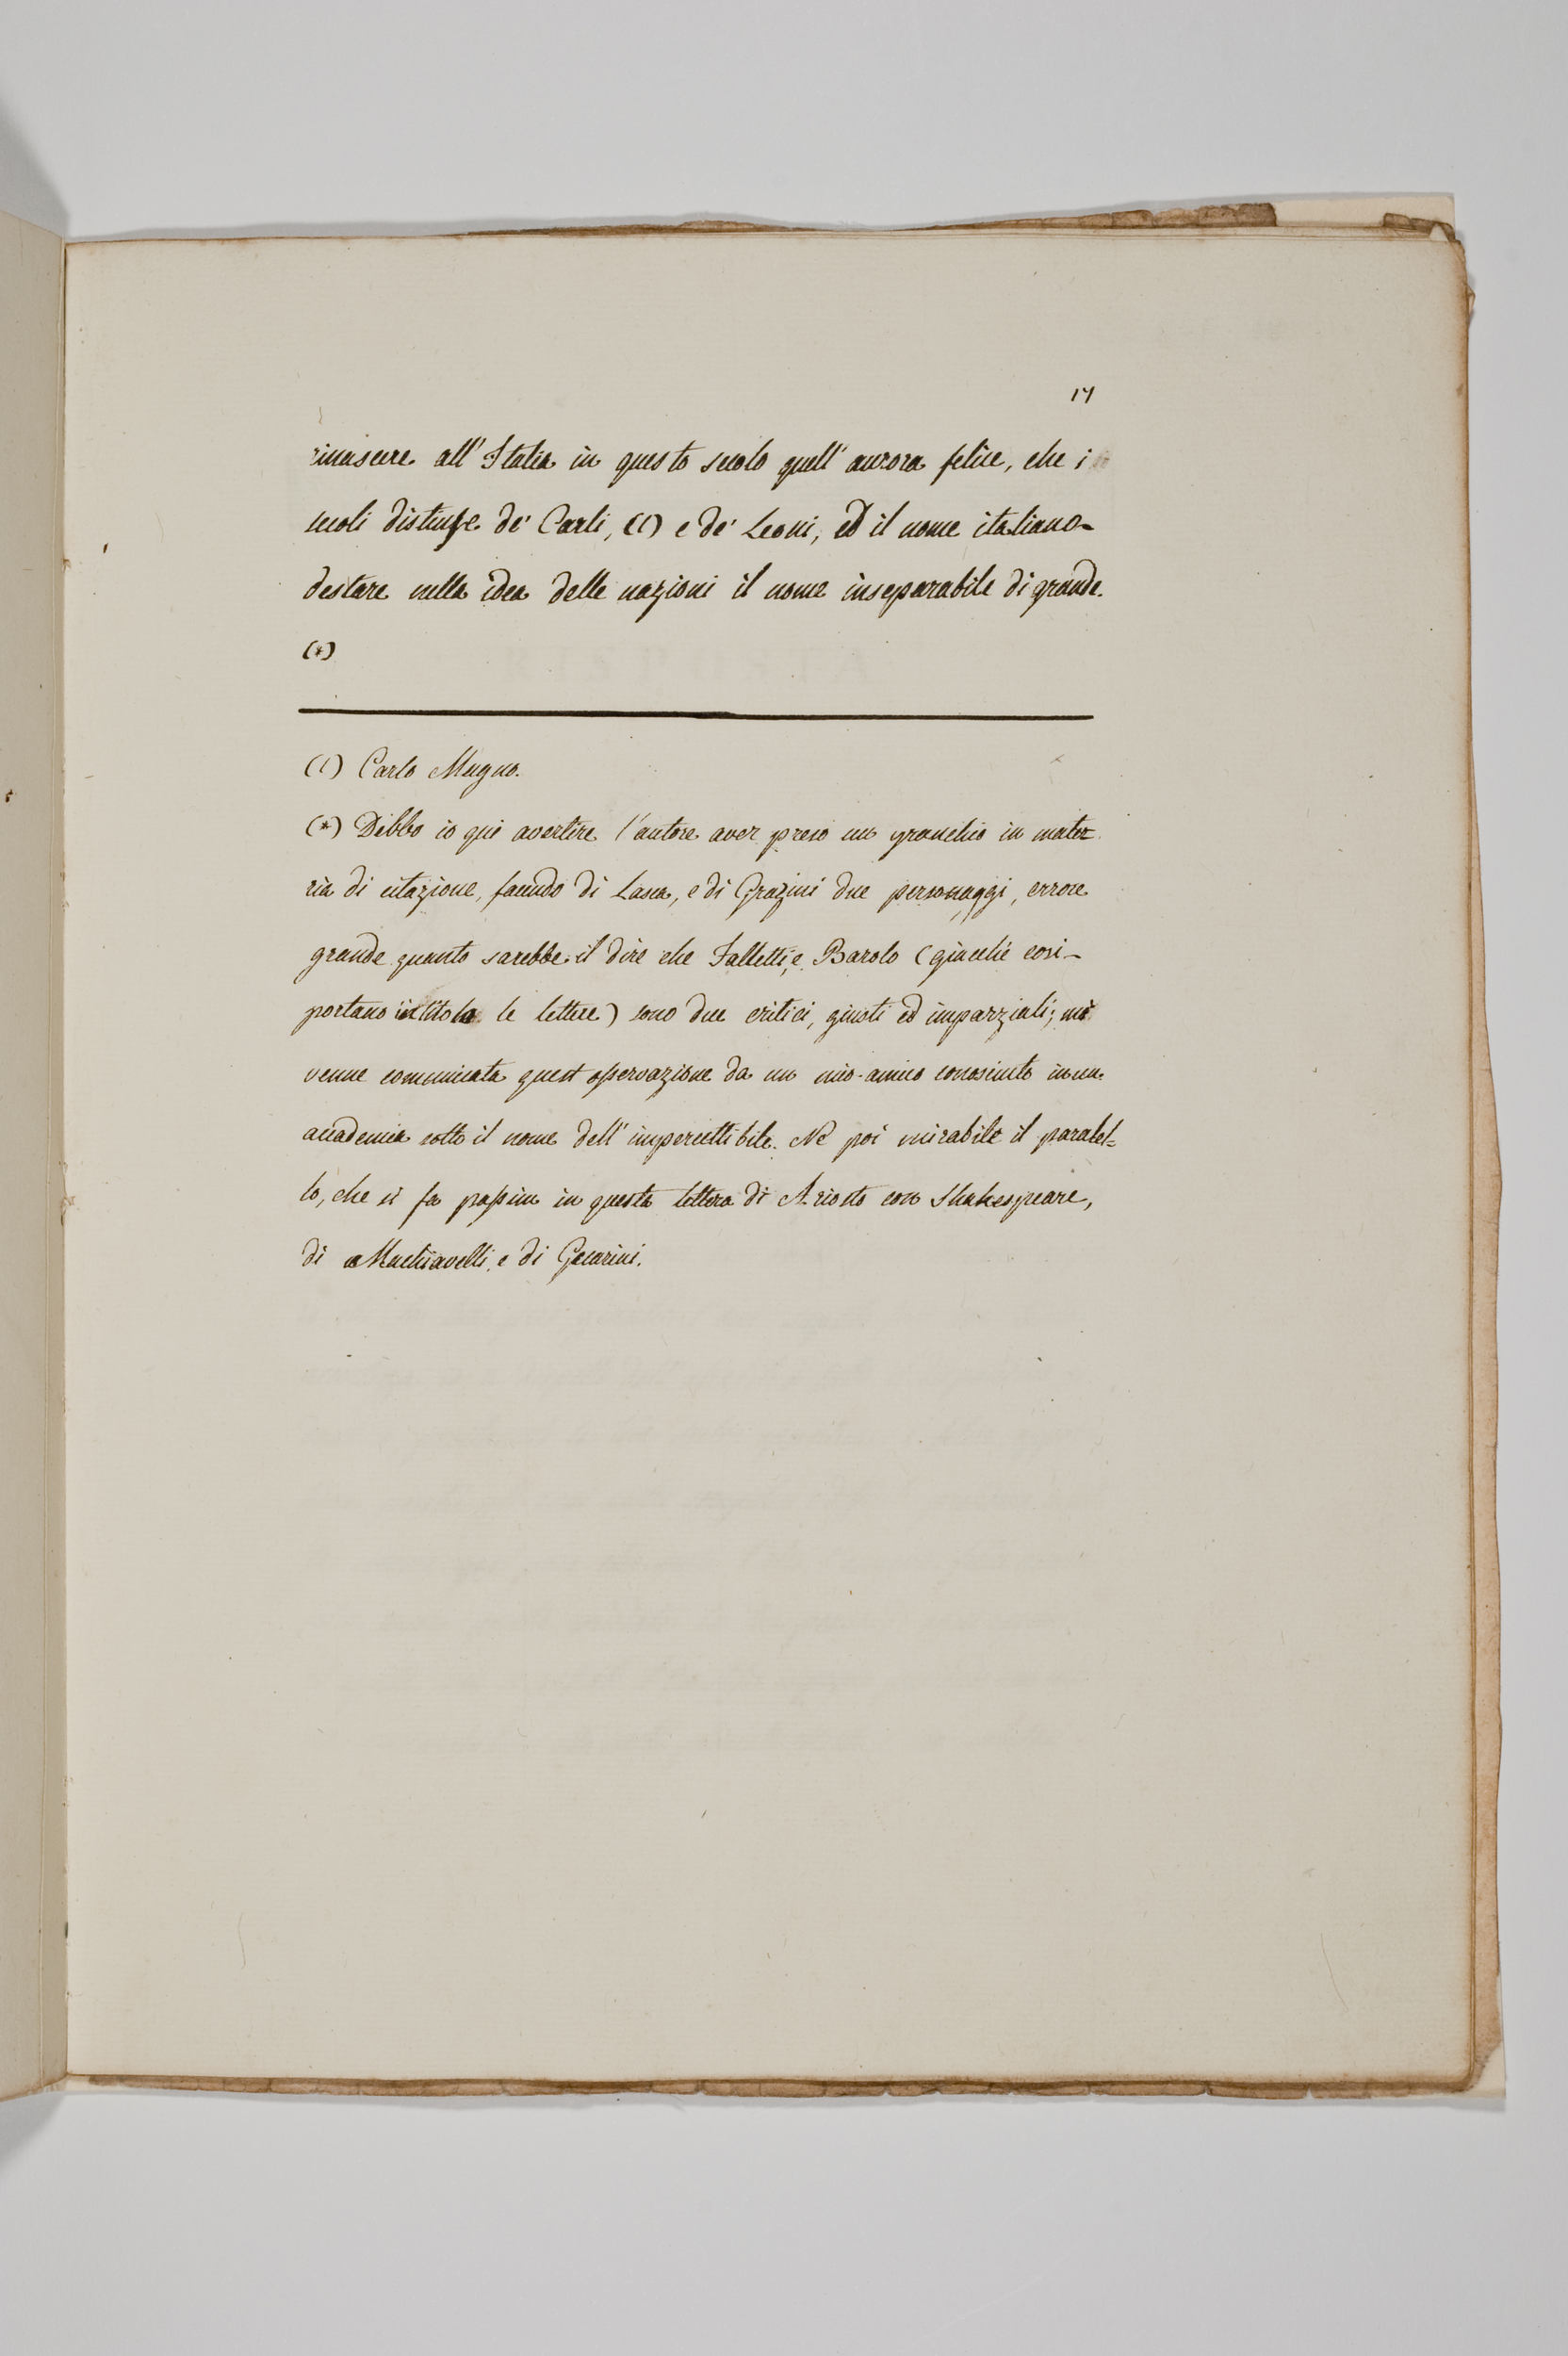 17
rinascere all' Italia in questo secolo quell' aurora felice, che i
secoli distinse de' Carli, (1) e de' Leoni, ed il nome italiano
destare nella idea delle nazioni il nome inseparabile di grande.
(*)
(1) Carlo Magno.
(*) Debbo io qui avertire l'autore aver preso un granchio in mate=
ria di citazione, facendo di Lasca, e di Grazini due personaggi, errore
grande quanto sarebbe il dire che Falletti, e Barolo (giacchè cosi
portano le lettere) sono due critici, giusti ed imparziali; mi
venne comunicata quest osservazione da un mio amico conosciuto in un
accademia sotto il nome dell' impercettibile. Ne poi mirabile il paralel=
lo, che si fa passim in questa lettera di Ariosto con Shakespeare,
di Machiavelli, e di Gecarini.
RISPOSTA